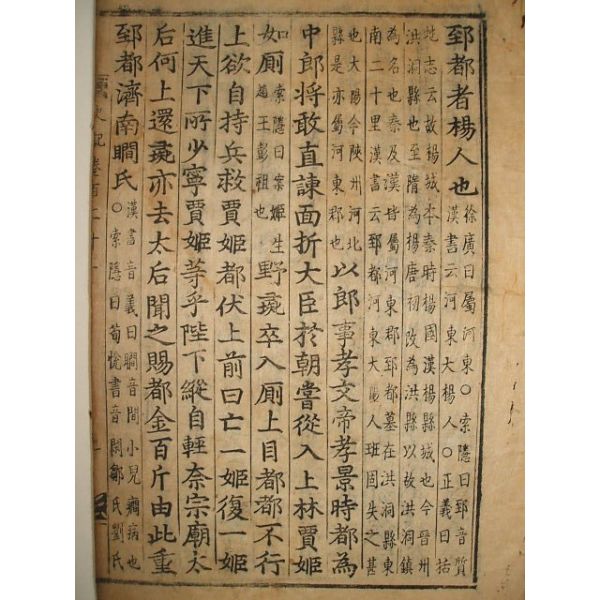 郅都者楊人也徐廣曰屬河東○索隱曰郅音質漢書云河東大楊人○正義曰括
地志云故楊城本秦時楊國漢楊縣城也今晉州洪洞縣也至隋為楊唐初改為洪縣以故洪洞鎮
為名也秦及漢皆屬河東郡郅都墓在洪洞縣東南二十里漢書云郅都河東大陽人班固失之甚
也大陽今陝州河北縣是亦屬河東郡也以郎事孝文帝孝景時都為
中郎將敢直諫面折大臣於朝嘗從入上林賈姬
如厠索隱曰案姬生趙王彭祖也野彘卒入厠上目都都不行
上欲自持兵救賈姬都伏上前曰亡一姬復一姬
進天下所少寧賈姬等乎陛下縱自輕奈宗廟太
后何上還彘亦去太后聞之賜都金百斤由此重
郅都濟南瞷氏○漢書音義曰瞷音間小兒癇病也○索隱曰荀悅書音閑鄒氏劉氏
史記